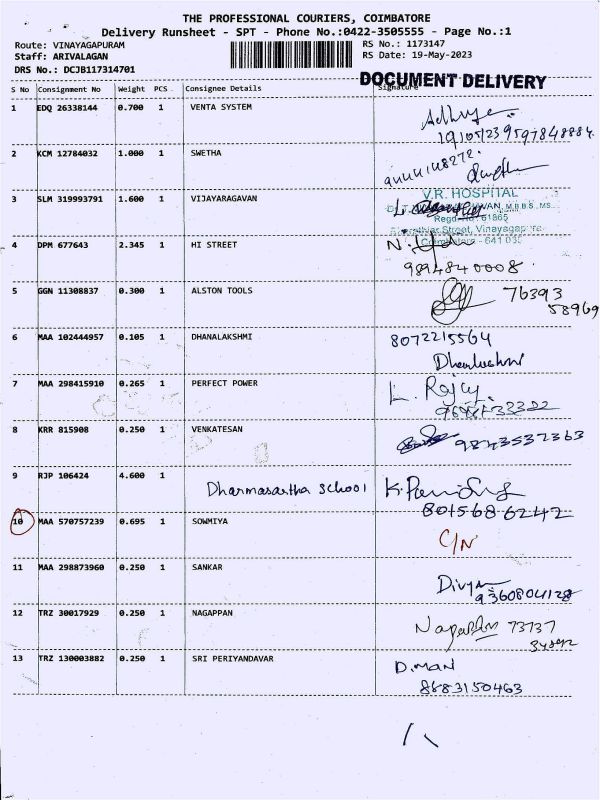 THE PROFESSIONAL COURIERS, COIMBATORE
Delivery Runsheet - SPT - Phone No.:0422-3505555 - Page No.:1
Route: VINAYAGAPURAM RS No.: 1173147
Staff: ARIVALAGAN RS Date: 19-May-2023
DRS No.: DCJB117314701
DOCUMENT DELIVERY
S No Consignment No Weight PCS Consignee Details Signature
1 EDQ 26338144 0.700 1 VENTA SYSTEM
2 KCM 12784032 1.000 1 SWETHA
3 SLM 319993791 1.600 1 VIJAYARAGAVAN
V.R. HOSPITAL
M.B.B.S., MS
Street, Vinayagap
Coimbatore - 641 03
4 DPM 677643 2.345 1 HI STREET
9894840008
5 GGN 11308837 0.300 1 ALSTON TOOLS 76393
58969
6 MAA 102444957 0.105 1 DHANALAKSHMI 8072215564
7 MAA 298415910 0.265 1 PERFECT POWER
8 KRR 815908 0.250 1 VENKATESAN 9843537363
9 RJP 106424 4.600 1 Dharmasastha School
8015686242
10 MAA 570757239 0.695 1 SOWMIYA C/N
11 MAA 298873960 0.250 1 SANKAR
9360804128
12 TRZ 30017929 0.250 1 NAGAPPAN 73737
13 TRZ 130003882 0.250 1 SRI PERIYANDAVAR D.MAN
8683150463